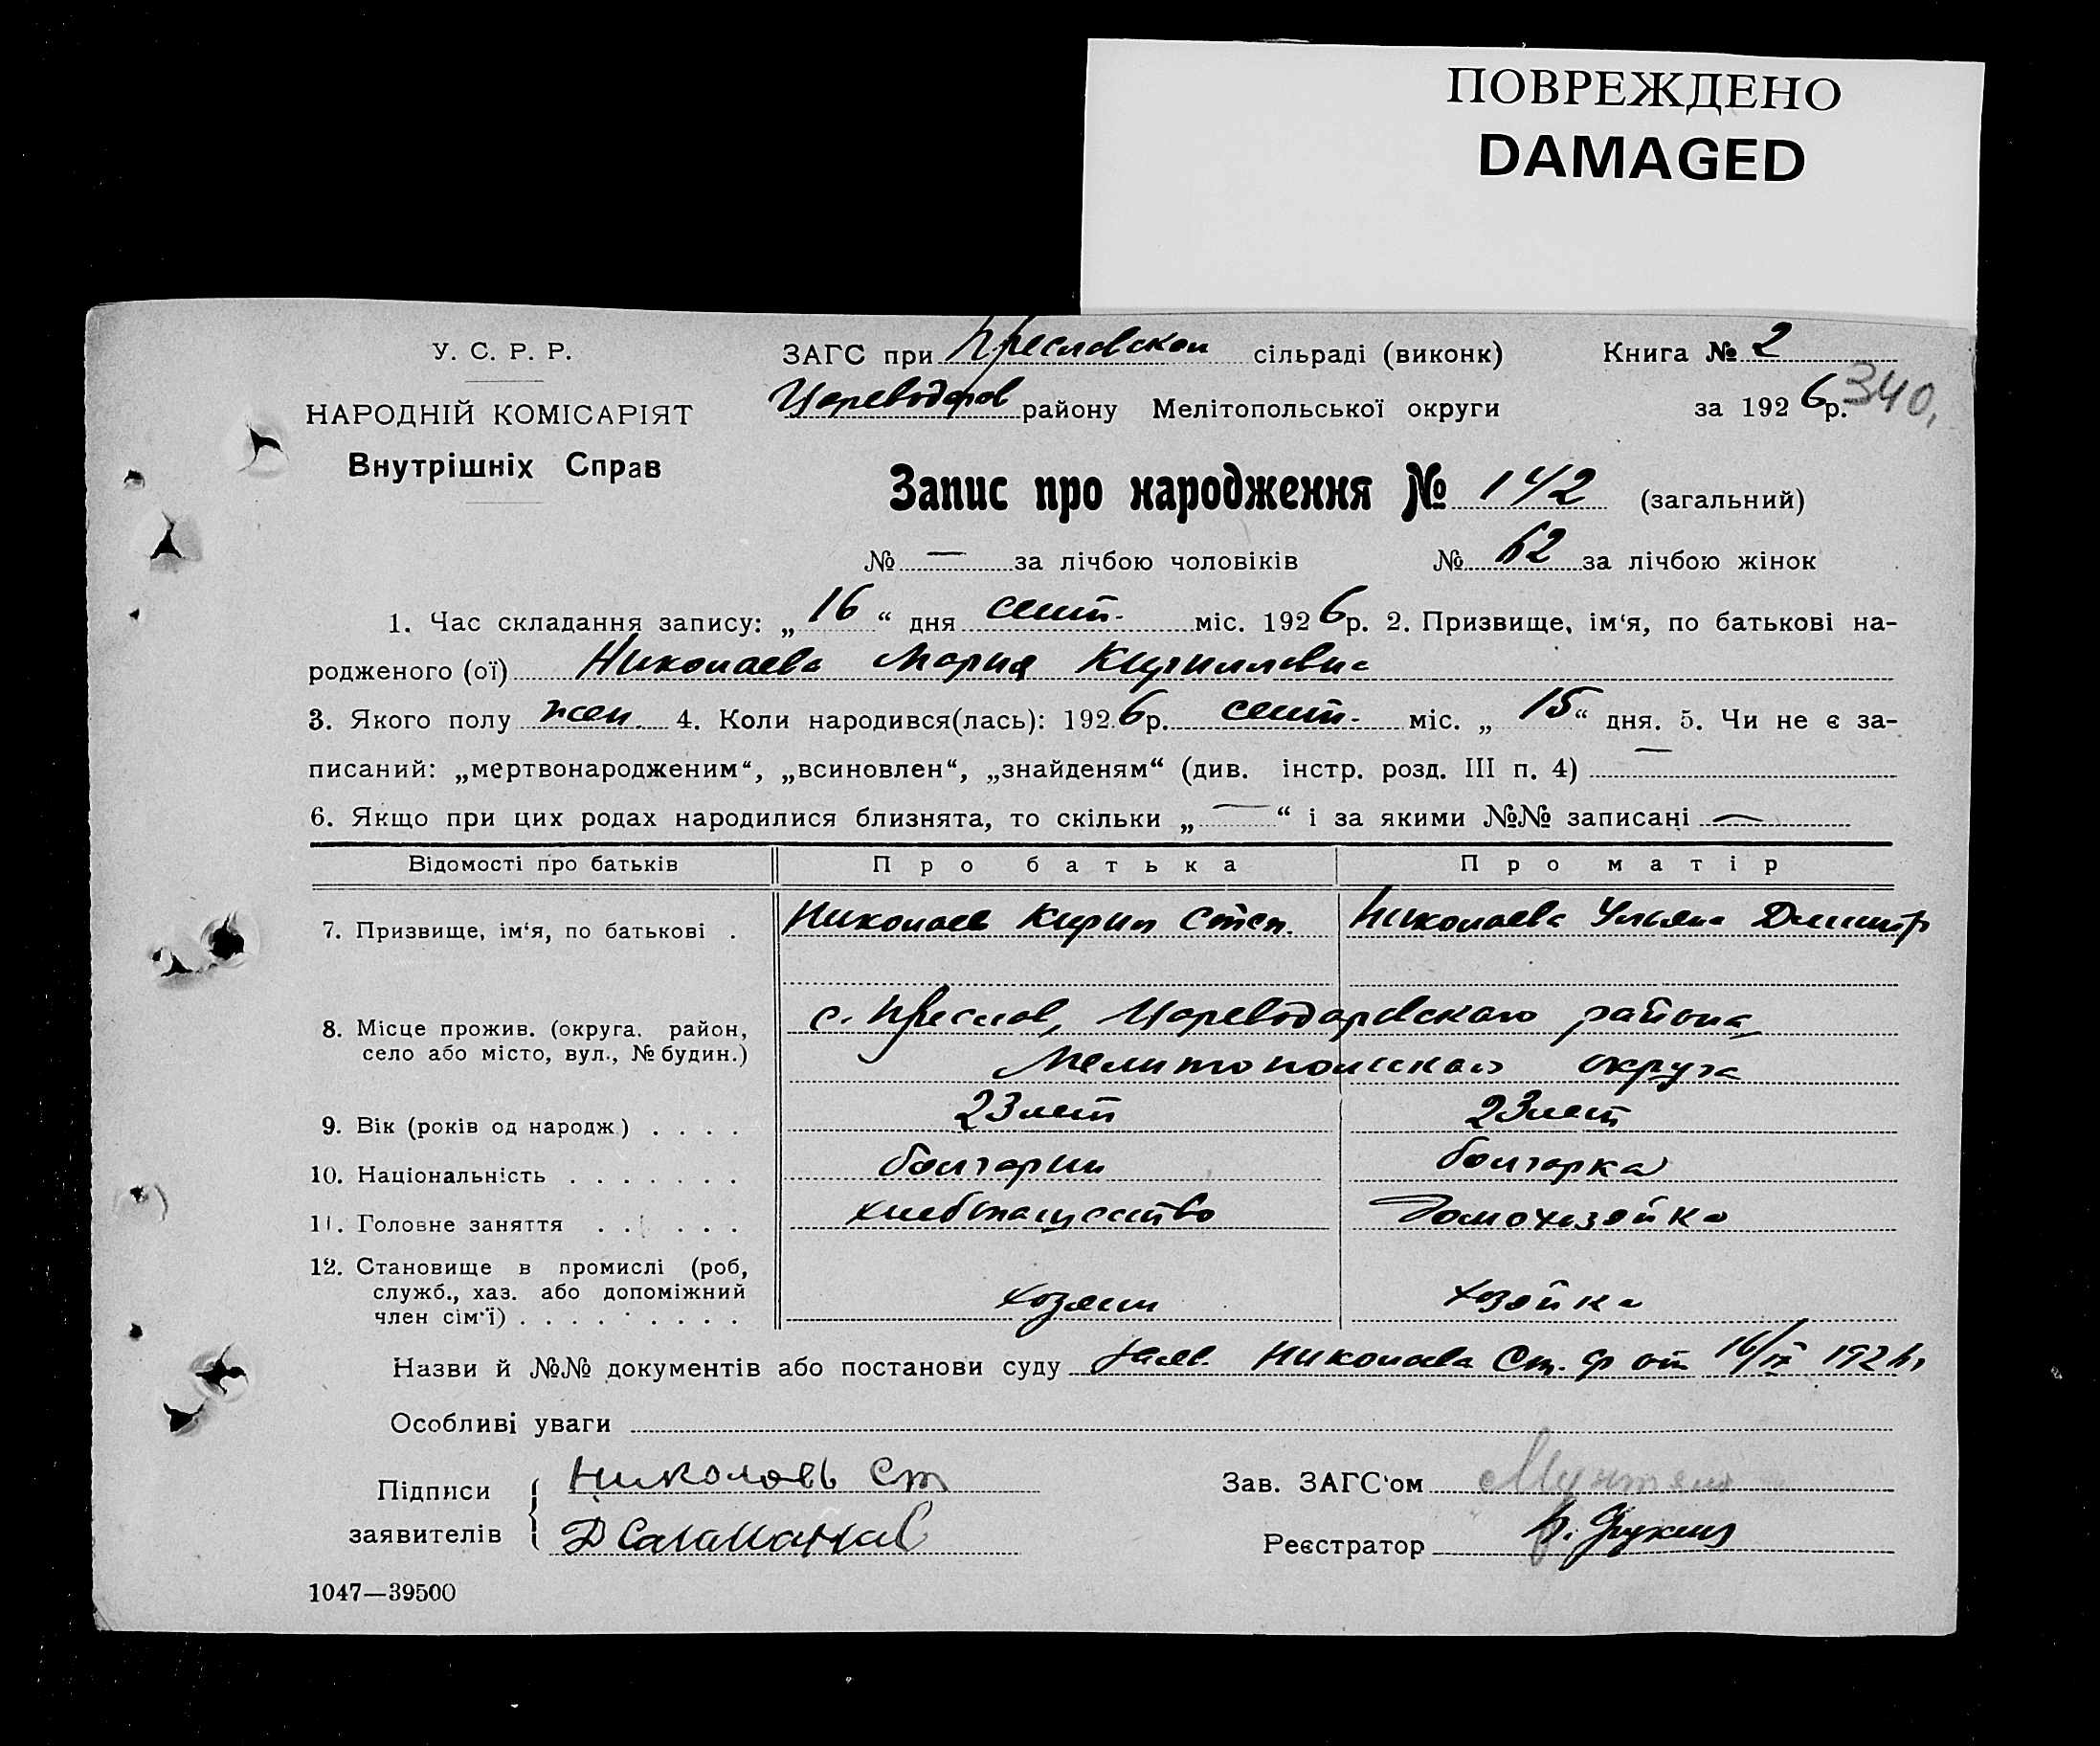 ПОВРЕЖДЕНО
DAMAGED
У. С. Р. Р.
НАРОДНІЙ КОМІСАРІЯТ
Внутрішніх Справ
ЗАГС при Преславской сільраді (виконк)
Книга № 2
Цареводаров району Мелітопольської округи
за 1926р. 340,
Запис про народження № 142 (загальний)
№ — за лічбою чоловіків № 62 за лічбою жінок
1. Час складання запису: „16“ дня сент. міс. 1926р. 2. Призвище, ім‘я, по батькові на-
родженого (ої) Николаева Мария Кирилловна
3. Якого полу жен. 4. Коли народився(лась): 1926р. сент. міс. „15“ дня. 5. Чи не є за-
писаний: „мертвонародженим“, „всиновлен“, „знайденям“ (див. інстр. розд. III п. 4) —
6. Якщо при цих родах народилися близнята, то скільки „—“ і за якими №№ записані —
Відомості про батьків Про батька Про матір
7. Призвище, ім‘я, по батькові . Николаев Кирил Степ. Николаева Ульяна Димитр
8. Місце прожив. (округа. район, с. Преслав, Цареводаровского района
село або місто, вул., № будин.) Мелитопольского округа
9. Вік (років од народж) . . . . 23 лет 23 лет
10. Національність . . . . . . . болгарин болгарка
11. Головне заняття . . . . . хлебопашество Домохозяйка
12. Становище в промислі (роб,
служб., хаз. або допоміжний хозяин хозяйка
член сім‘ї) . . . . . . . . .
Назви й №№ документів або постанови суду заяв. Николаева Ст. Ф от 16/IX 1926г
Особливі уваги
Підписи Николаевъ Ст
заявителів Д
Зав. ЗАГС‘ом Мунтян
Реєстратор
1047—39500